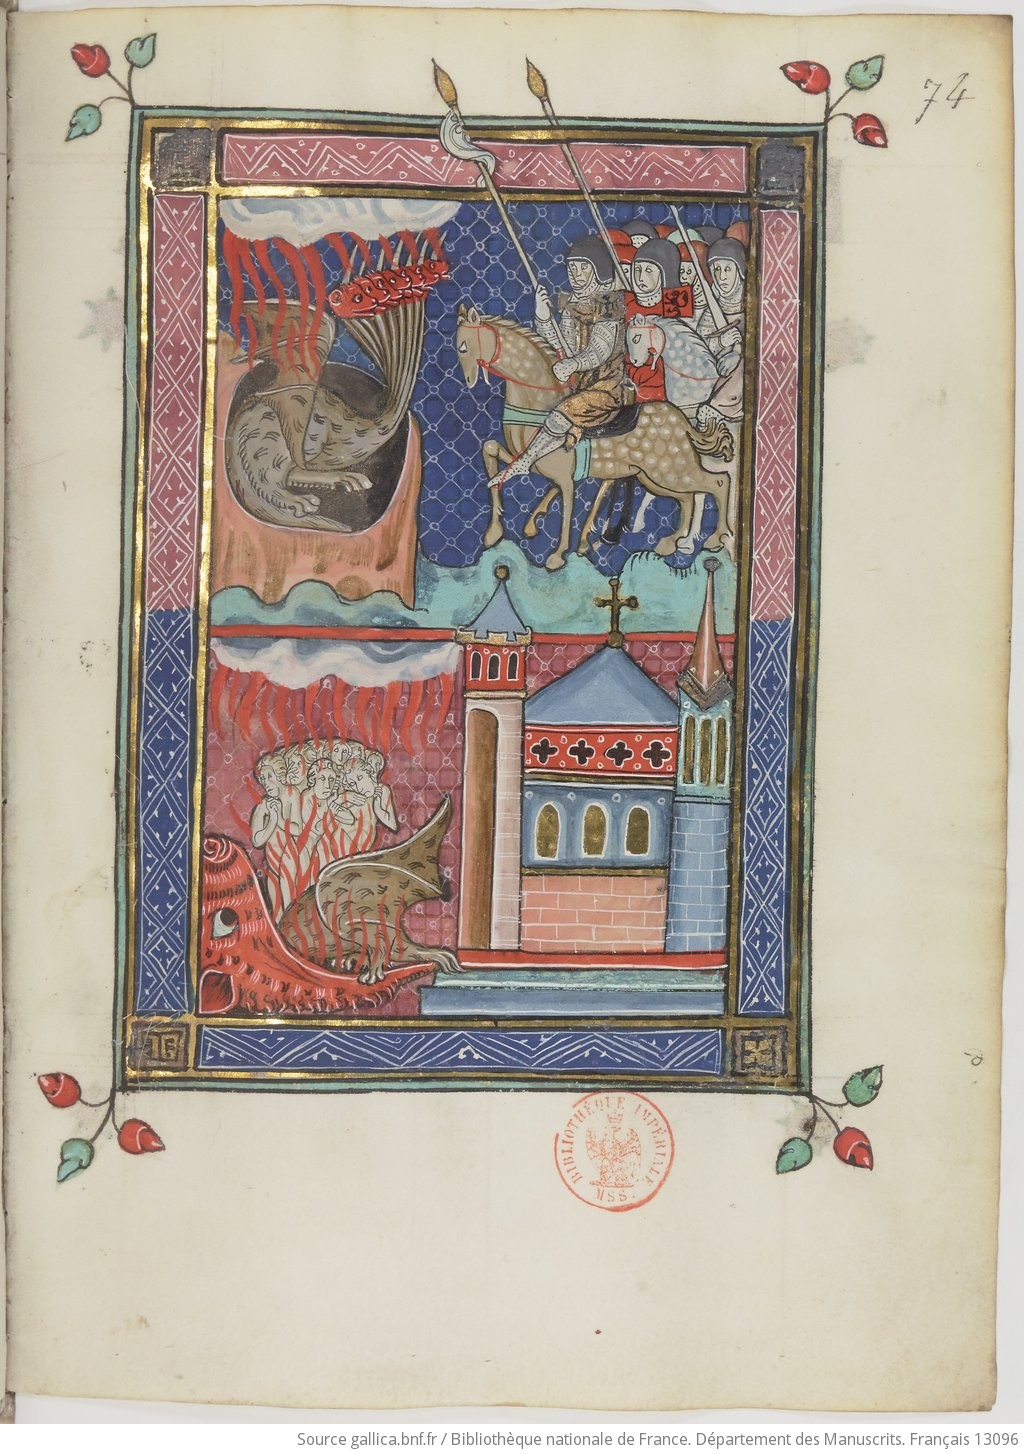 74
BIBLIOTHÈQUE IMPÉRIALE
MSS.
Source gallica.bnf.fr / Bibliothèque nationale de France. Département des Manuscrits. Français 13096